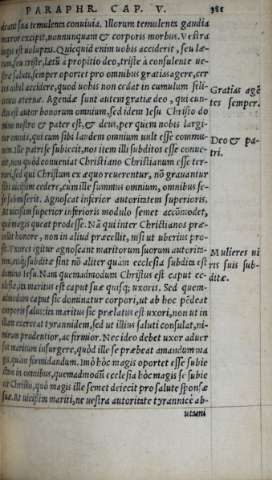 PARAPHR. CAP. V. 381
sua temulentos conuiuia. Illorum temulenta gaudia
mœror excipit, nonnunquam & corporis morbus. Vestra
est uoluptas. Quicquid enim uobis acciderit, seu læ-
seu triste, lætū à propitio deo, triste à consulente ue-
saluti, semper oportet pro omnibus gratias agere, cer
uobis accidere, quod uobis non cedat in cumulum feli-
æternæ. Agendæ sunt autem gratiæ deo, qui cun-
est autor bonorum omnium, sed idem Iesu Christo do
nostro & pater est, & deus, per quem nobis largi-
omnia, qui cum sibi eandem omnium uult esse commu-
Ille patri se subiecit, nos item illi subditos esse conue-
quò conueniat Christiano Christianum esse ter-
sed qui Christum ex æquo reuerentur, nō grauantur
uicißim cedere, cum ille summus omnium, omnibus se-
submiserit. Agnoscat inferior autoritatem superioris.
rursum superior inferioris modulo semet accōmodet,
magis queat prodesse. Nā qui inter Christianos præ-
honore, non in aliud præcellit, nisi ut uberius pro-
Vxores igitur agnoscant maritorum suorum autorita-
subditæ sint nō aliter quam ecclesia subdita est
domino Iesu. Nam quemadmodum Christus est caput ec-
clesiæ, ita maritus est caput suæ quisq; uxoris. Sed quem-
admodum caput sic dominatur corpori, ut ab hoc pēdeat
corporis salus: ita maritus sic prælatus est uxori, non ut in
illam exerceat tyrannidem, sed ut illius saluti consulat,
prudentior, ac firmior. Nec ideo debet uxor aduer
maritum insurgere, quòd ille se præbeat amandum ma
quàm formidandum. Imò hoc magis oportet esse subie
in omnibus, quemadmodū ecclesia hòc magis se subie
Christo, quò magis ille semet deiecit pro salute sponsæ
suæ. At uicißim mariti, ne uestra autoritate tyrannicè ab-
utami
Gratias agē
tes semper.
Deo & pa-
tri.
Mulieres ui
ris suis sub-
ditæ.